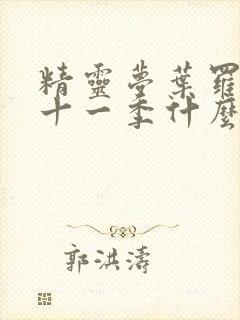 精靈夢葉羅
十一季什麼
郭洪濤